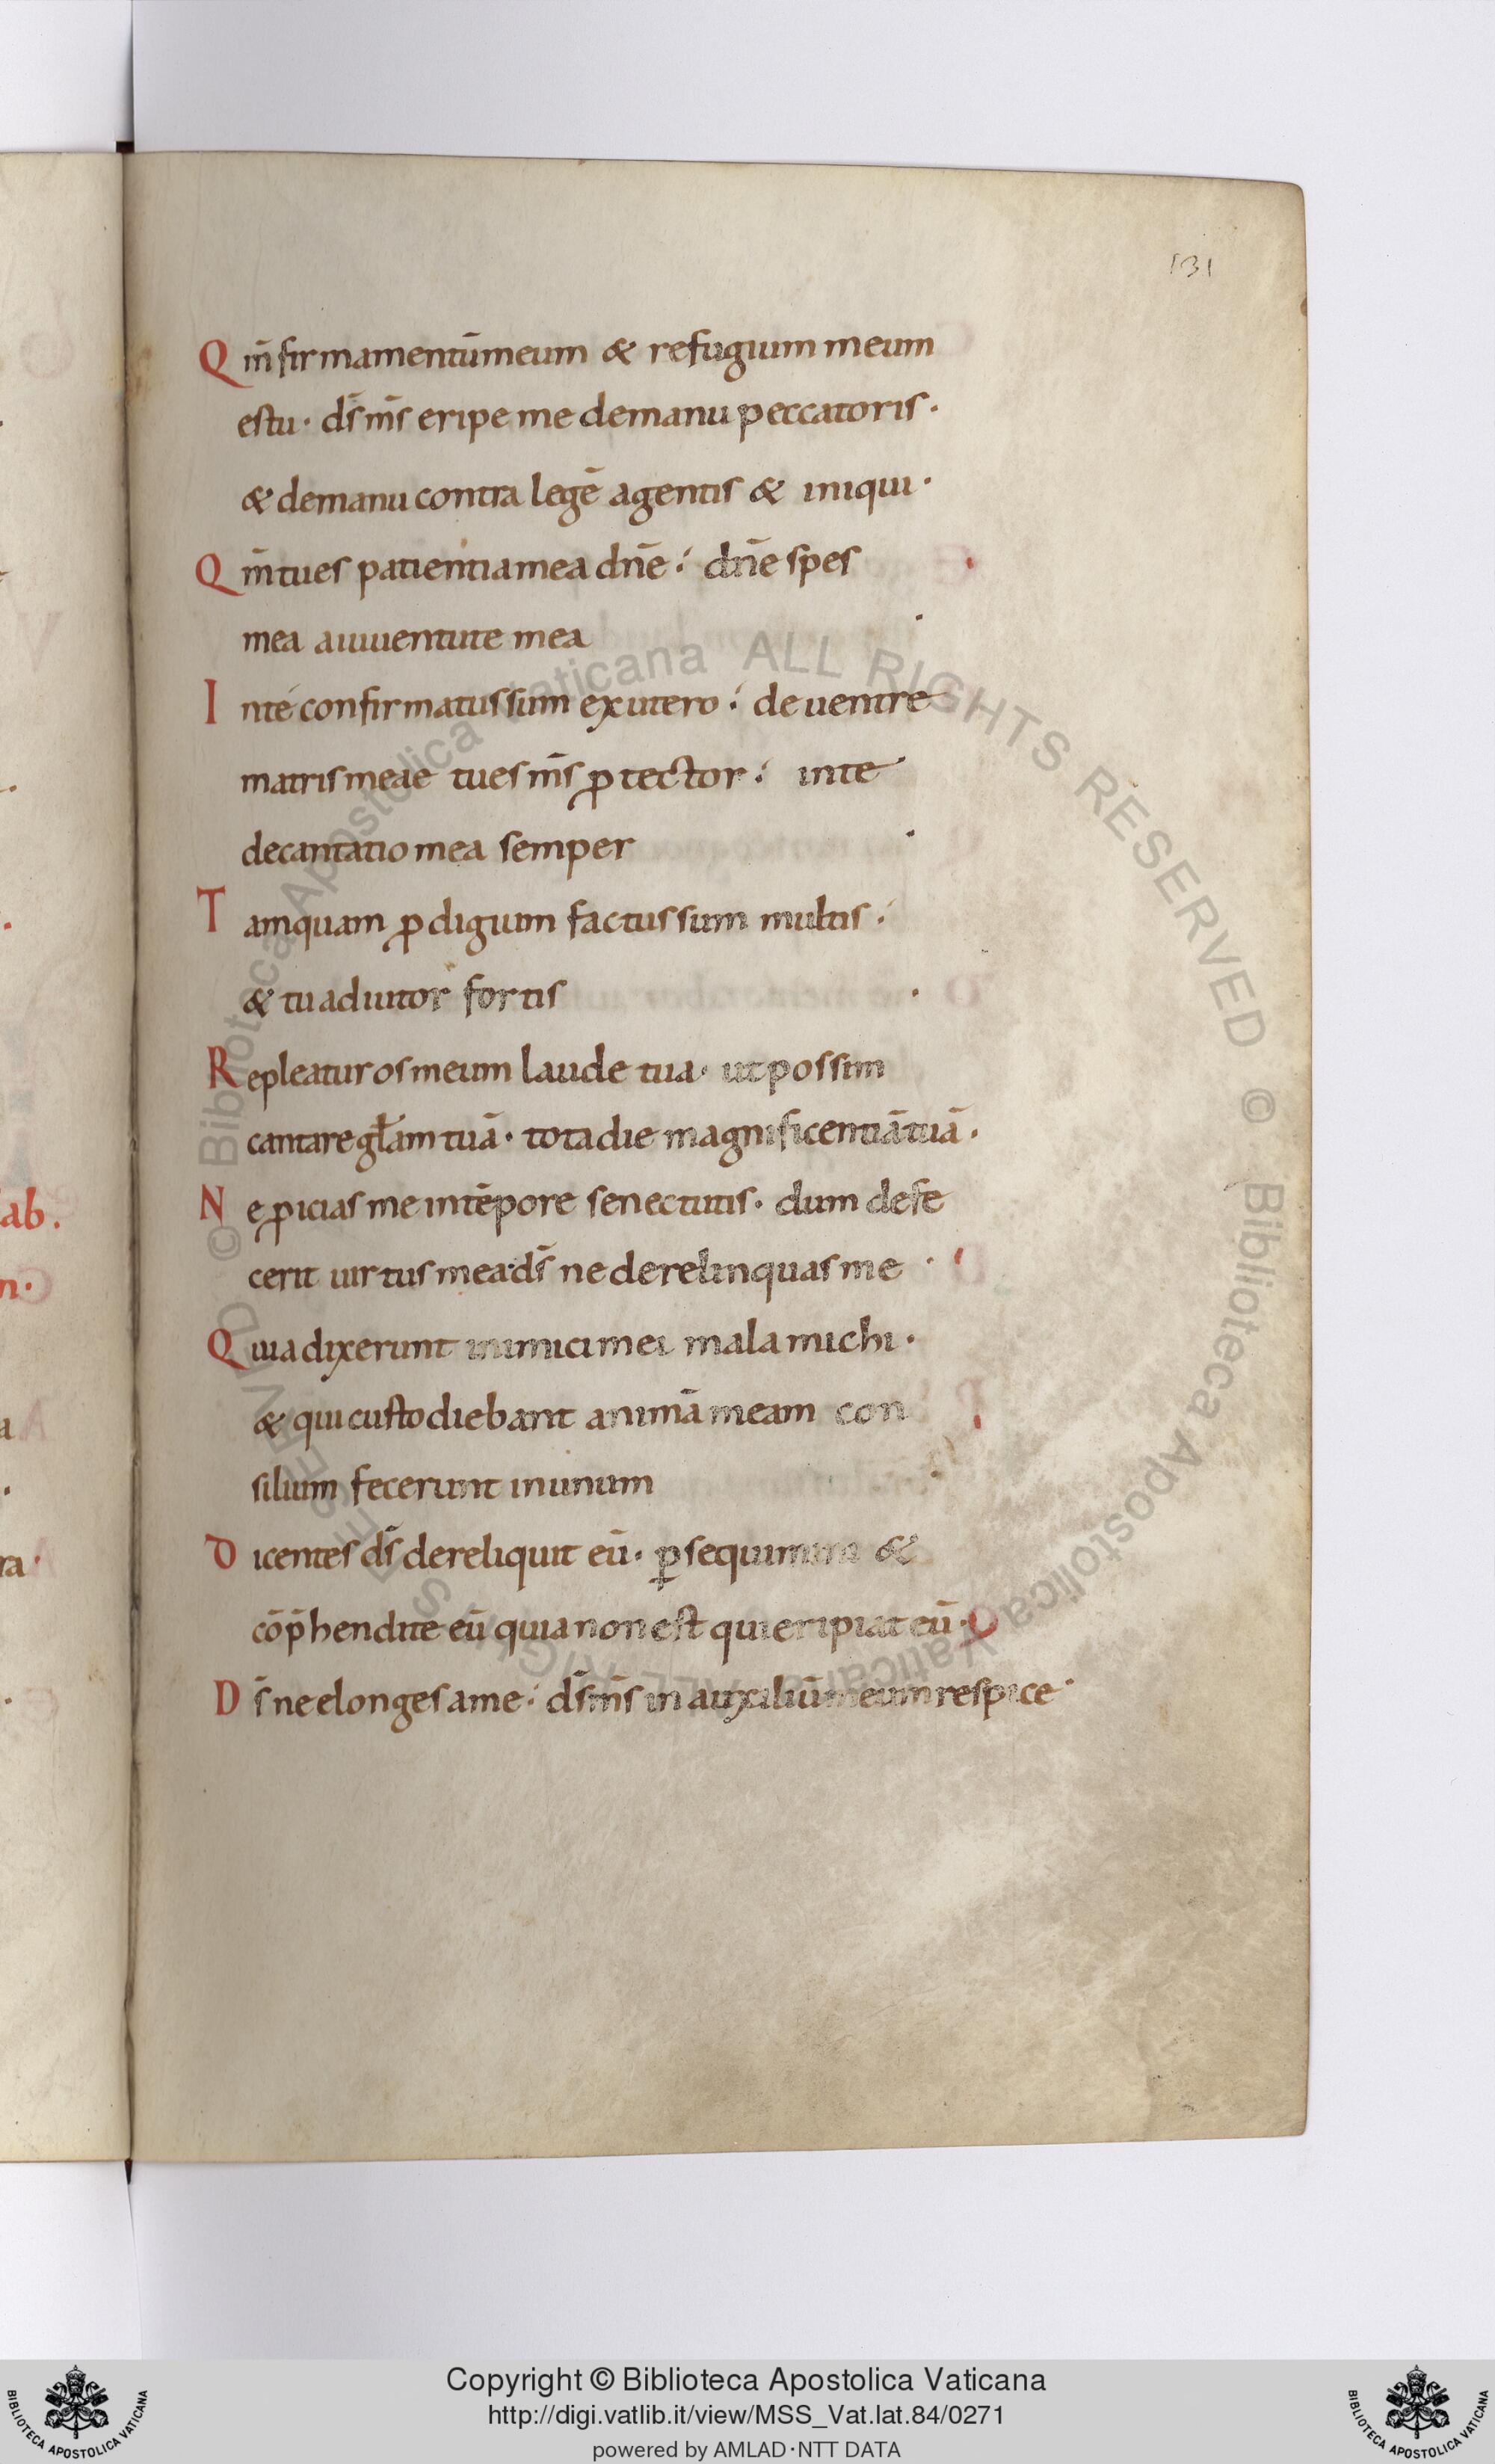 131
Qm̄ firmamentū meum & refugium meum
es tu · d̄s m̄s eripe me de manu peccatoris ·
& de manu contra legē agentis & iniqui ·
Qm̄ tu es patientia mea dn̄e : dn̄e spes
mea a iuuentute mea ·
In te confirmatus sum ex utero : de uentre
matris meae tu es m̄s ꝓtector : in te
decantatio mea semper ·
Tamquam ꝓdigium factus sum multis :
& tu adiutor fortis ·
Repleatur os meum laude tua · ut possim
cantare gl̄am tuā · tota die magnificentiā tuā ·
Ne ꝓicias me in tēpore senectutis · dum defe
cerit uirtus mea · d̄s ne derelinquas me ·
Quia dixerunt inimici mei mala michi ·
& qui custodiebant animā meam con
silium fecerunt in unum ·
Dicentes d̄s dereliquit eū · ꝑsequimini &
cōp̄hendite eū quia non est qui eripiat eū ·
D̄s ne elonges a me : d̄s m̄s in auxiliū meum respice ·
ab.
n.
a
ra.
© Biblioteca Apostolica Vaticana ALL RIGHTS RESERVED © Biblioteca Apostolica Vaticana ALL RIGHTS RESERVED
Copyright © Biblioteca Apostolica Vaticana
http://digi.vatlib.it/view/MSS_Vat.lat.84/0271
powered by AMLAD·NTT DATA
BIBLIOTECA APOSTOLICA VATICANA
BIBLIOTECA APOSTOLICA VATICANA